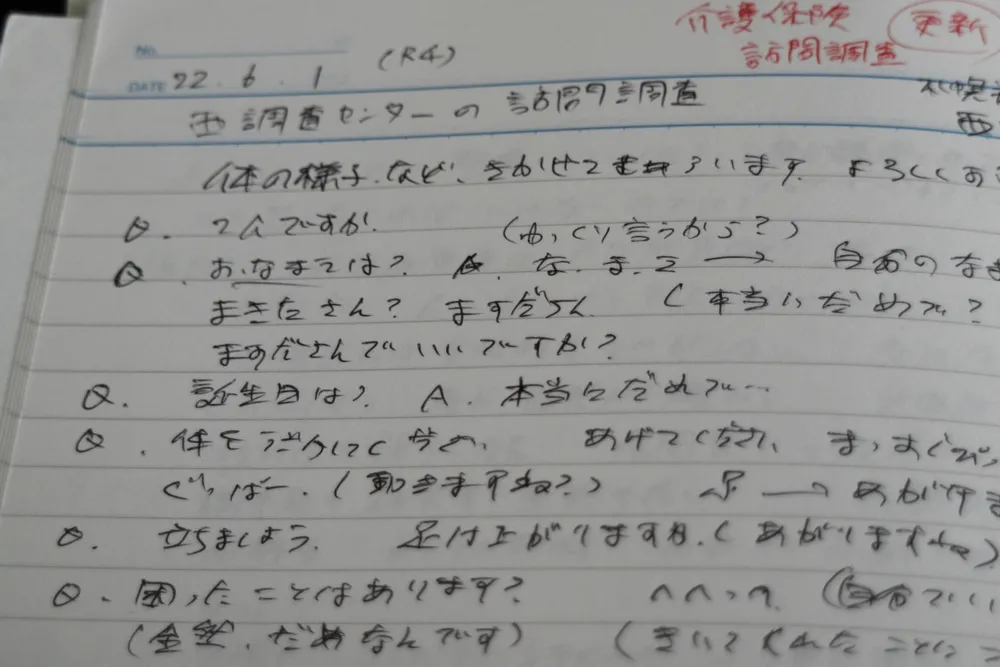 介護保険 更新
訪問調査
No.
(R4)
DATE 22.6.1
西調査センターの訪問調査 札幌
西
体の様子、など、きかせてもらいます。よろしくお
Q. 2人ですか。 (ゆっくり言うから?)
Q. おなまえは? な.ま.え → 自分のなま
まきたさん? ますださん (本当にだめで?
ますださんでいいですか?
Q. 誕生日は? A. 本当にだめで…
Q. 体を あげてください、まっすぐ
ぐっぱー。(動きますね?) 足 → あがりま
Q. 立ちましょう。 足は上がりますか。(あがりますね)
Q. 困ったことはあります? (自分でいい
(全然、だめなんです) (きいてくれたことに